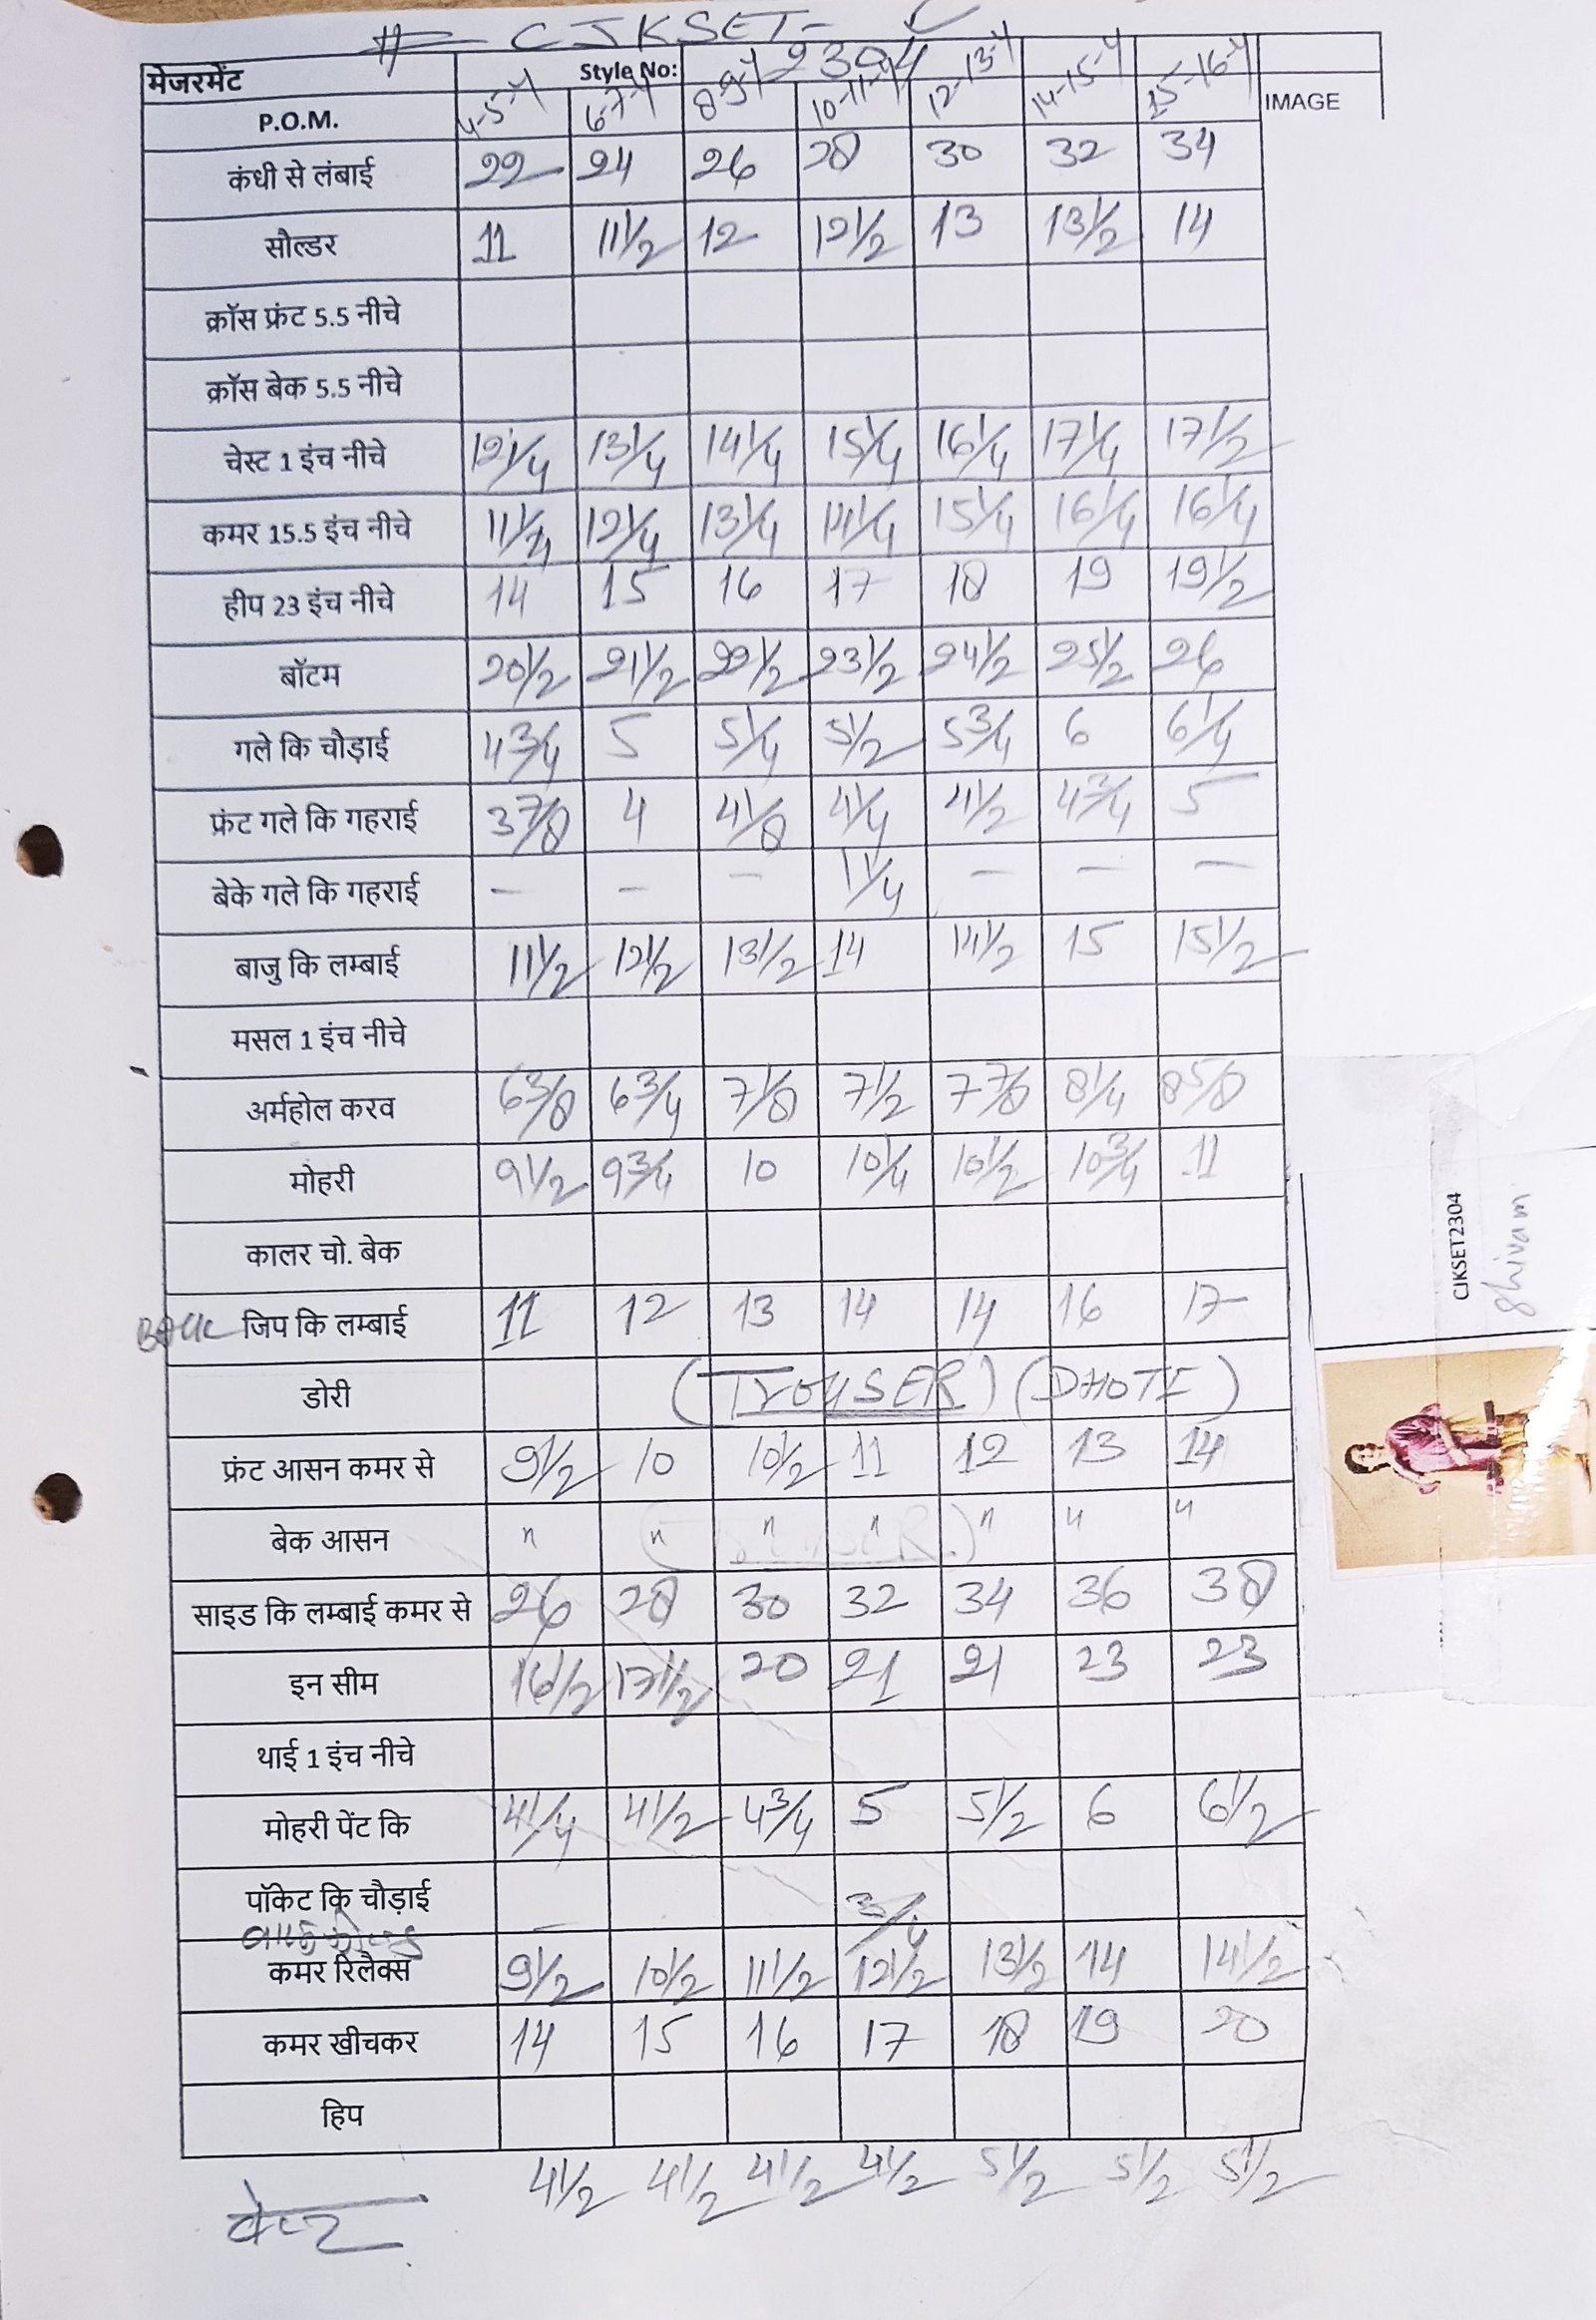 # CJKSET-
मेजरमेंट Style No: 2304
P.O.M. 4-5-Y 6-7-Y 8-9-Y 10-11-Y 12-13-Y 14-15-Y 15-16-Y IMAGE
कंधी से लंबाई 22 24 26 28 30 32 34
सौल्डर 11 11 1/2 12 12 1/2 13 13 1/2 14
क्रॉस फ्रंट 5.5 नीचे
क्रॉस बेक 5.5 नीचे
चेस्ट 1 इंच नीचे 12 1/4 13 1/4 14 1/4 15 1/4 16 1/4 17 1/4 17 1/2
कमर 15.5 इंच नीचे 11 1/4 12 1/4 13 1/4 14 1/4 15 1/4 16 1/4 16 1/4
हीप 23 इंच नीचे 14 15 16 17 18 19 19 1/2
बॉटम 20 1/2 21 1/2 22 1/2 23 1/2 24 1/2 25 1/2 26
गले कि चौड़ाई 4 3/4 5 5 1/4 5 1/2 5 3/4 6 6 1/4
फ्रंट गले कि गहराई 3 7/8 4 4 1/8 4 1/4 4 1/2 4 3/4 5
बेके गले कि गहराई - - - 1 1/4 - - -
बाजु कि लम्बाई 11 1/2 12 1/2 13 1/2 14 14 1/2 15 15 1/2
मसल 1 इंच नीचे
अर्महोल करव 6 3/8 6 3/4 7 1/8 7 1/2 7 7/8 8 1/4 8 5/8
मोहरी 9 1/2 9 3/4 10 10 1/4 10 1/2 10 3/4 11
कालर चो. बेक
जिप कि लम्बाई 11 12 13 14 14 16 17
डोरी (TroUSER) (DHOTI)
फ्रंट आसन कमर से 9 1/2 10 10 1/2 11 12 13 14
बेक आसन " " " " " " "
साइड कि लम्बाई कमर से 26 28 30 32 34 36 38
इन सीम 16 1/2 17 1/2 20 21 21 23 23
थाई 1 इंच नीचे
मोहरी पेंट कि 4 1/4 4 1/2 4 3/4 5 5 1/2 6 6 1/2
पॉकेट कि चौड़ाई 3/4
कमर रिलैक्स 9 1/2 10 1/2 11 1/2 12 1/2 13 1/2 14 14 1/2
कमर खीचकर 14 15 16 17 18 19 20
हिप
4 1/2 4 1/2 4 1/2 4 1/2 5 1/2 5 1/2 5 1/2
CJKSET2304
Shivam